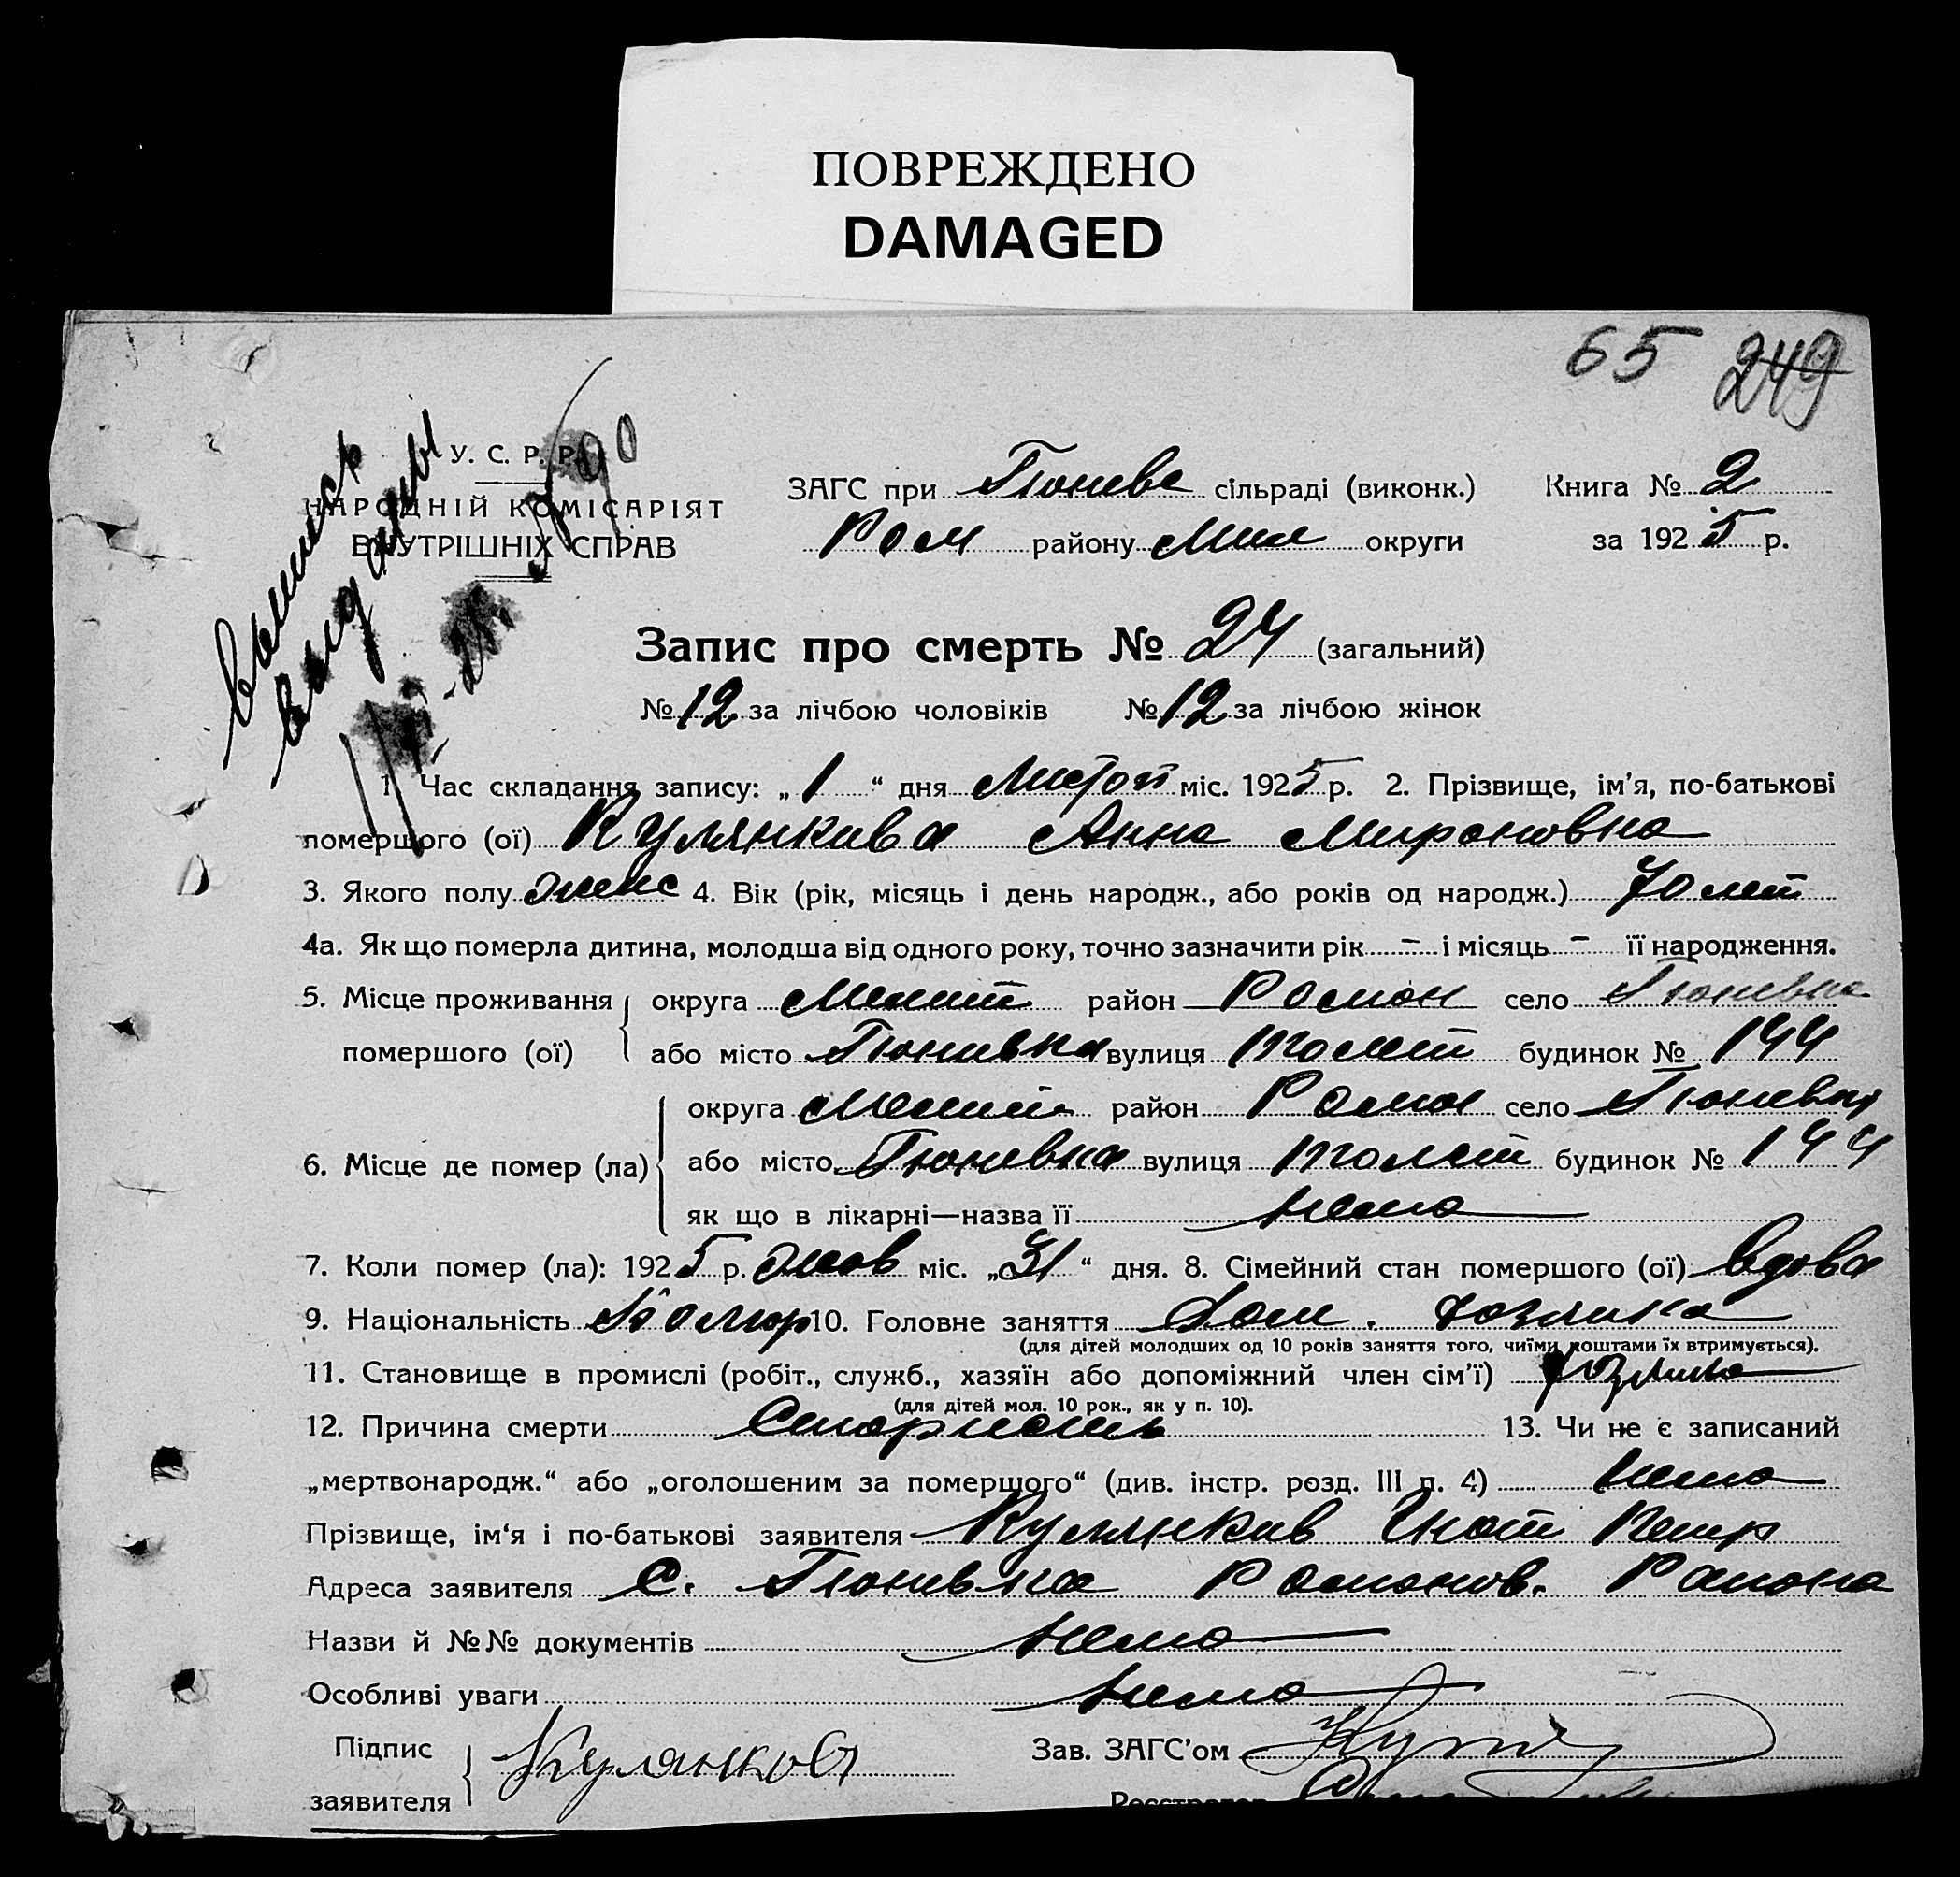 ПОВРЕЖДЕНО
DAMAGED
65 249
У. С. Р. Р.
НАРОДНІЙ КОМІСАРІЯТ
ВНУТРІШНІХ СПРАВ
выпись
выданы
ЗАГС при Гюневе сільраді (виконк.) Книга № 2
Ром району Мил округи за 1925 р.
Запис про смерть № 24 (загальний)
№ 12 за лічбою чоловіків № 12 за лічбою жінок
1. Час складання запису: „ 1 “ дня Листоп міс. 1925 р. 2. Прізвище, ім'я, по-батькові
помершого (ої) Кулянкива Анна Мироновна
3. Якого полу женс 4. Вік (рік, місяць і день народж., або років од народж.) 70 лет
4а. Як що померла дитина, молодша від одного року, точно зазначити рік - і місяць - її народження.
5. Місце проживання помершого (ої) округа Мелит район Роман село Гюневка
або місто Гюневка вулиця будинок № 144
6. Місце де помер (ла) округа район Роман село Гюневка
або місто Гюневка вулиця будинок № 144
як що в лікарні—назва її нема
7. Коли помер (ла): 1925 р. жов міс. „31“ дня. 8. Сімейний стан помершого (ої) вдова
9. Національність Болгар 10. Головне заняття Дом. хозяика
(для дітей молодших од 10 років заняття того, чиїми коштами їх втримується).
11. Становище в промислі (робіт., служб., хазяїн або допоміжний член сім'ї)
(для дітей мол. 10 рок., як у п. 10).
12. Причина смерти Старисть 13. Чи не є записаний
„мертвонародж.“ або „оголошеним за померщого“ (див. інстр. розд. III п. 4) нема
Прізвище, ім'я і по-батькові заявителя Кулянкив Игнат Петр
Адреса заявителя С. Гюневка Романов. Раиона
Назви й №№ документів нема
Особливі уваги нема
Підпис заявителя Кулянков Зав. ЗАГС'ом
Реєстратор